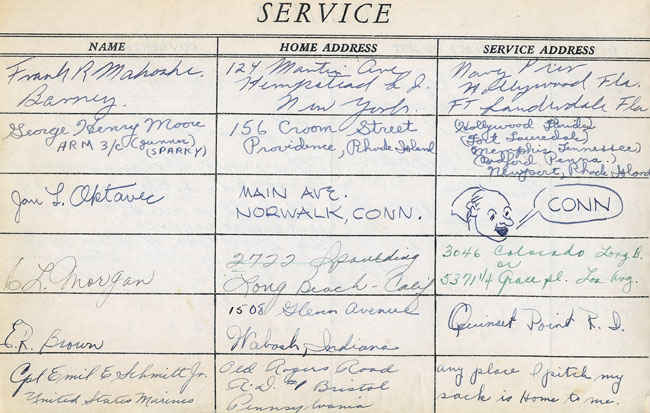 SERVICE
NAME HOME ADDRESS SERVICE ADDRESS
Frank R. Mahoshi.
Barney.
124 Martin Ave
Hempstead L. I.
New York.
Navy Pier
Hollywood Fla.
FT Lauderdale Fla
George Henry Moore
ARM 3/c (GUNNER)
(SPARKY)
156 Croom Street
Providence, Rhode Island
(Hollywood Florida)
(Fort Lauredale)
(Memphis Tennessee)
(Bedford Penna.)
Newport, Rhode Island
Jon L. Oktavec
MAIN AVE.
NORWALK, CONN.
CONN
C L. Morgan
2722 Spaulding
Long Beach - Calif
3046 Colorado Long B.
or
5371 1/4 Grace pl. Los Ang.
E.R. Brown
1508 Glenn Avenue
Wabash, Indiana
Quinset Point R. I.
Cpl Emil E Schmitt Jr.
United States Marines
Old Rogers Road
R.D. #1 Bristol
Pennsylvania
any place I pitch my
sack is Home to me.